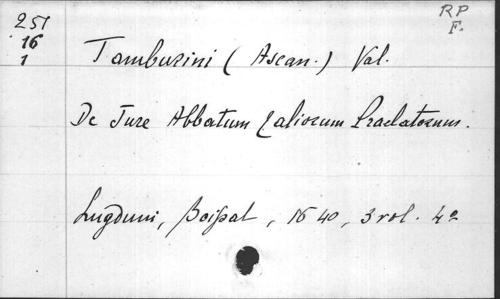 251
16
1
RP
F.
Tamburini (Ascan.) Val.
De Jure Abbatum & aliorum Praelatorum.
Lugduni, Boissat, 1640, 3 vol. 4º